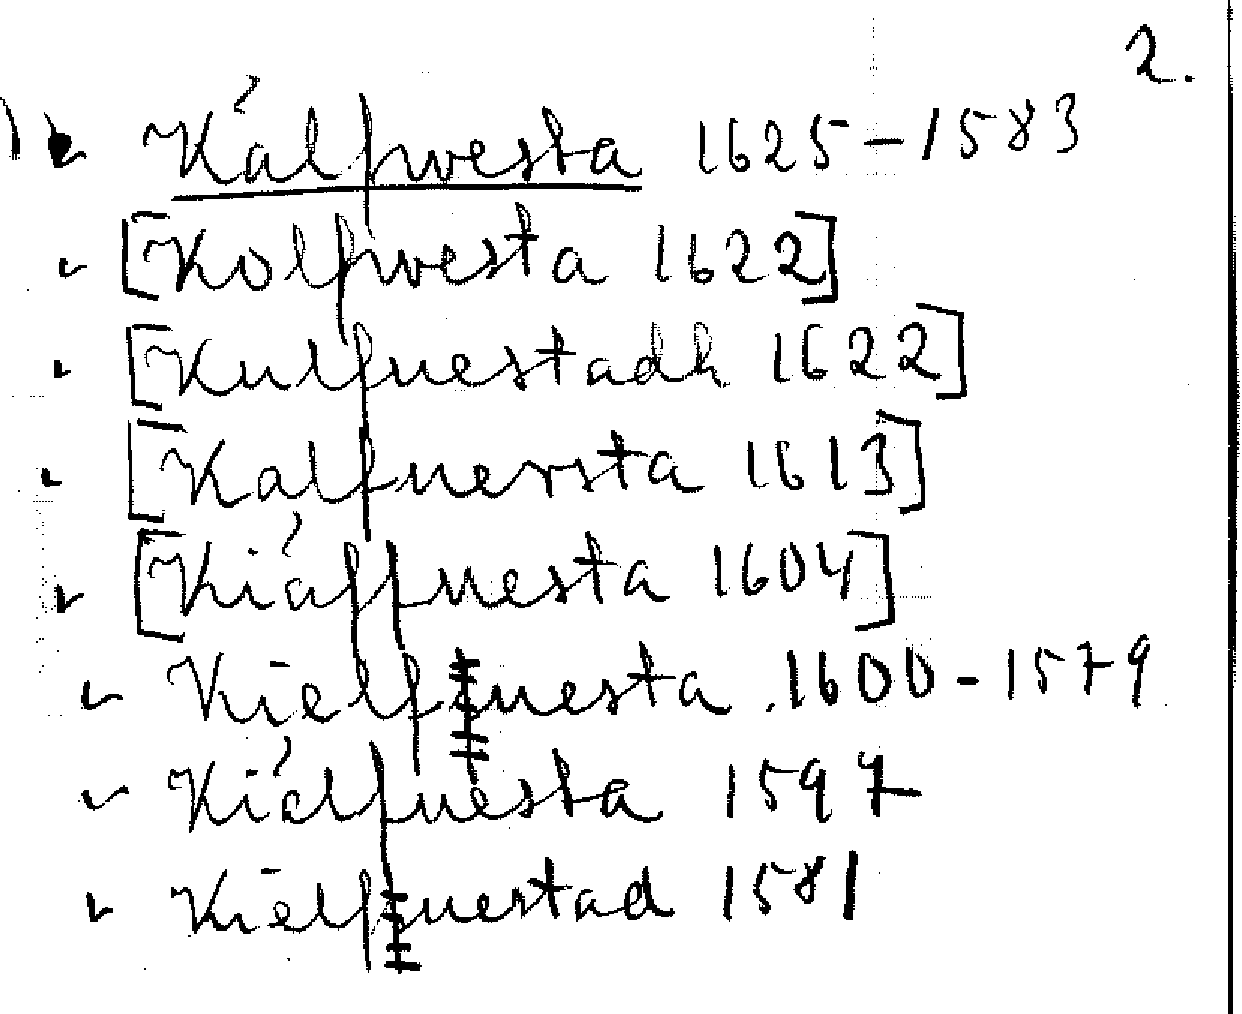 2.
Kålfwesta 1625-1583
[Kolfwesta 1622]
[Kulfuestadh 1622]
[Kalfuersta 1613]
[Kiåffuesta 1604]
Kielfuesta 1600-1579
Kiälfuesta 1597
Kielfuestad 1581